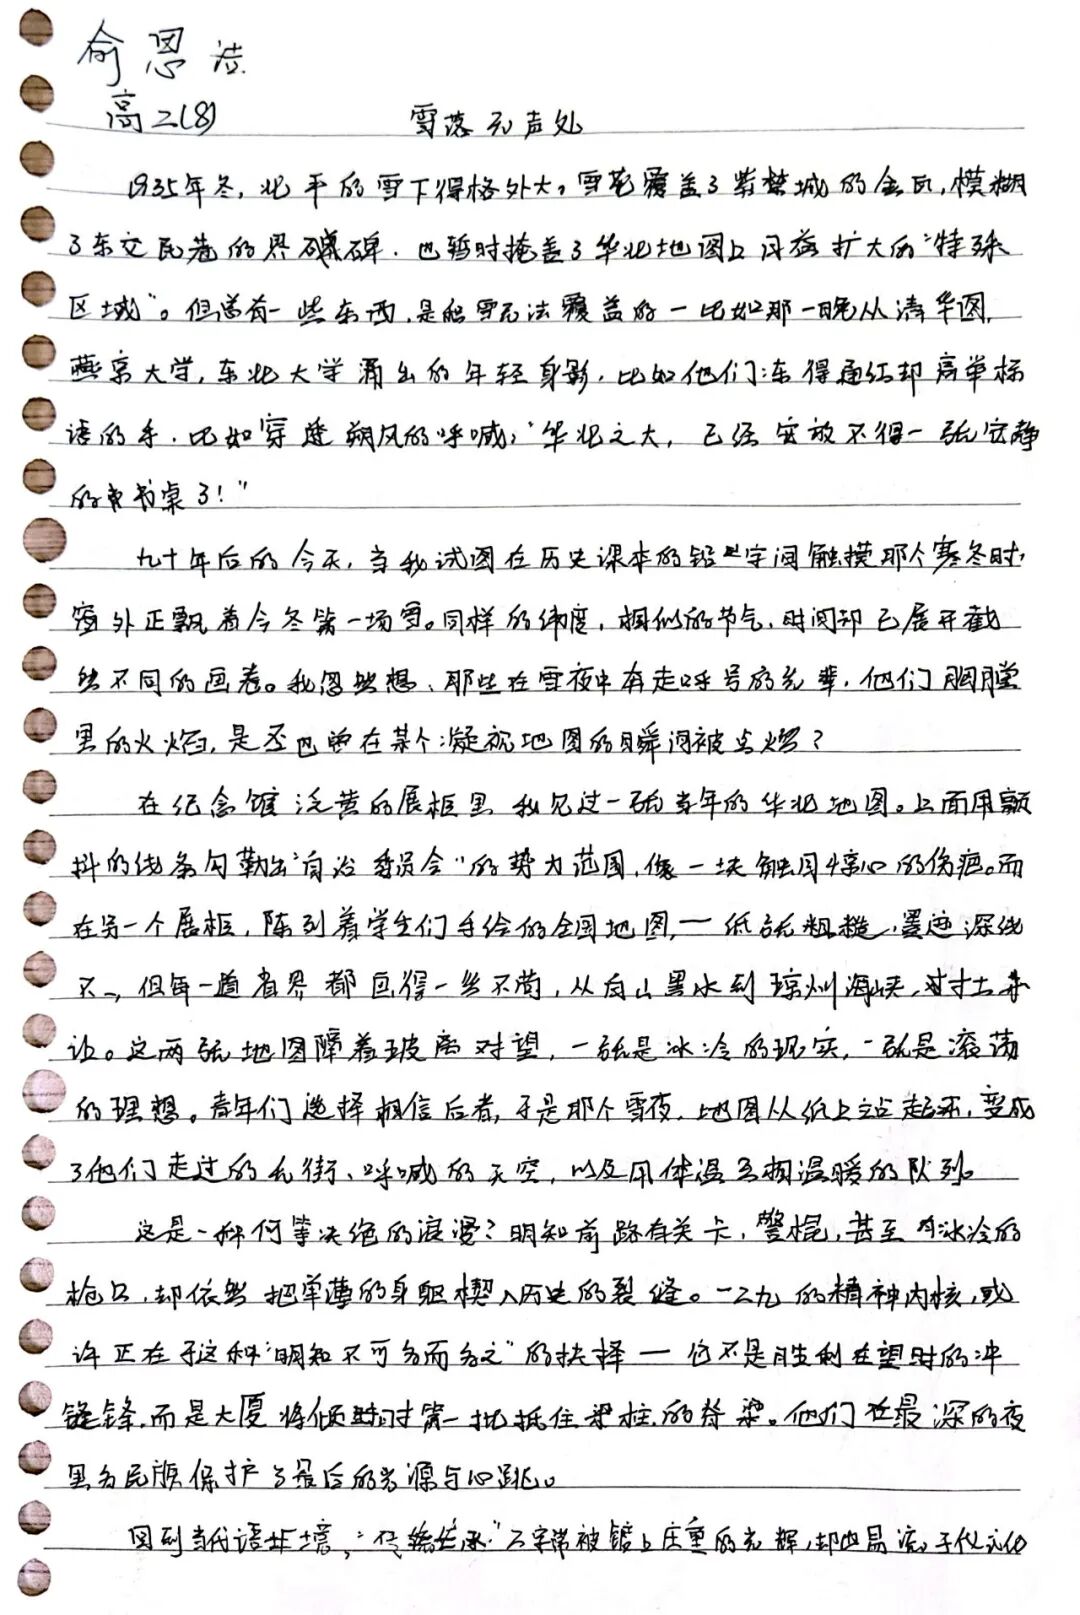 俞恩浩
高二(8)
雪落无声处
1935年冬，北平的雪下得格外大。雪花覆盖了紫禁城的金瓦，模糊
了东交民巷的界碑，也暂时掩盖了华北地图上日益扩大的“特殊
区域”。但总有一些东西，是积雪无法覆盖的—比如那一晚从清华园，
燕京大学，东北大学涌出的年轻身影，比如他们冻得通红却高举标
语的手，比如穿透朔风的呼喊：“华北之大，已经安放不得一张安静
的书桌了！”
九十年后的今天，当我试图在历史课本的铅字间触摸那个寒冬时，
窗外正飘着今冬第一场雪。同样的纬度，相似的节气，时间却已展开截
然不同的画卷。我忽然想、那些在雪夜中奔走呼号的先辈，他们胸膛
里的火焰，是否也曾在某个凝视地图的瞬间被点燃？
在纪念馆泛黄的展柜里 我见过一张当年的华北地图。上面用颤
抖的线条勾勒出“自治委员会”的势力范围，像一块触目惊心的伤疤。而
在另一个展柜，陈列着学生们手绘的全国地图，—纸张粗糙，墨迹深浅
不一，但每一道省界都画得一丝不苟，从白山黑水到琼州海峡，寸土未
让。这两张地图隔着玻离对望，一张是冰冷的现实，一张是滚荡
的理想。青年们选择相信后者，于是那个雪夜，地图从纸上站起来，变成
了他们走过的长街、呼喊的天空，以及用体温互相温暖的队列。
这是一种何等决绝的浪漫？明知前路有关卡，警棍，甚至冰冷的
枪口，却依然把单薄的身躯楔入历史的裂缝。一二九的精神内核，或
许正在于这种“明知不可为而为之”的抉择—它不是胜利在望时的冲
锋，而是大厦将倾时第一批抵住梁柱的脊梁。他们在最深的夜
里为民族保护了最后的光源与心跳。
回到当代语境，“传承”二字常被镀上庄重的光辉，却也易流于仪式化